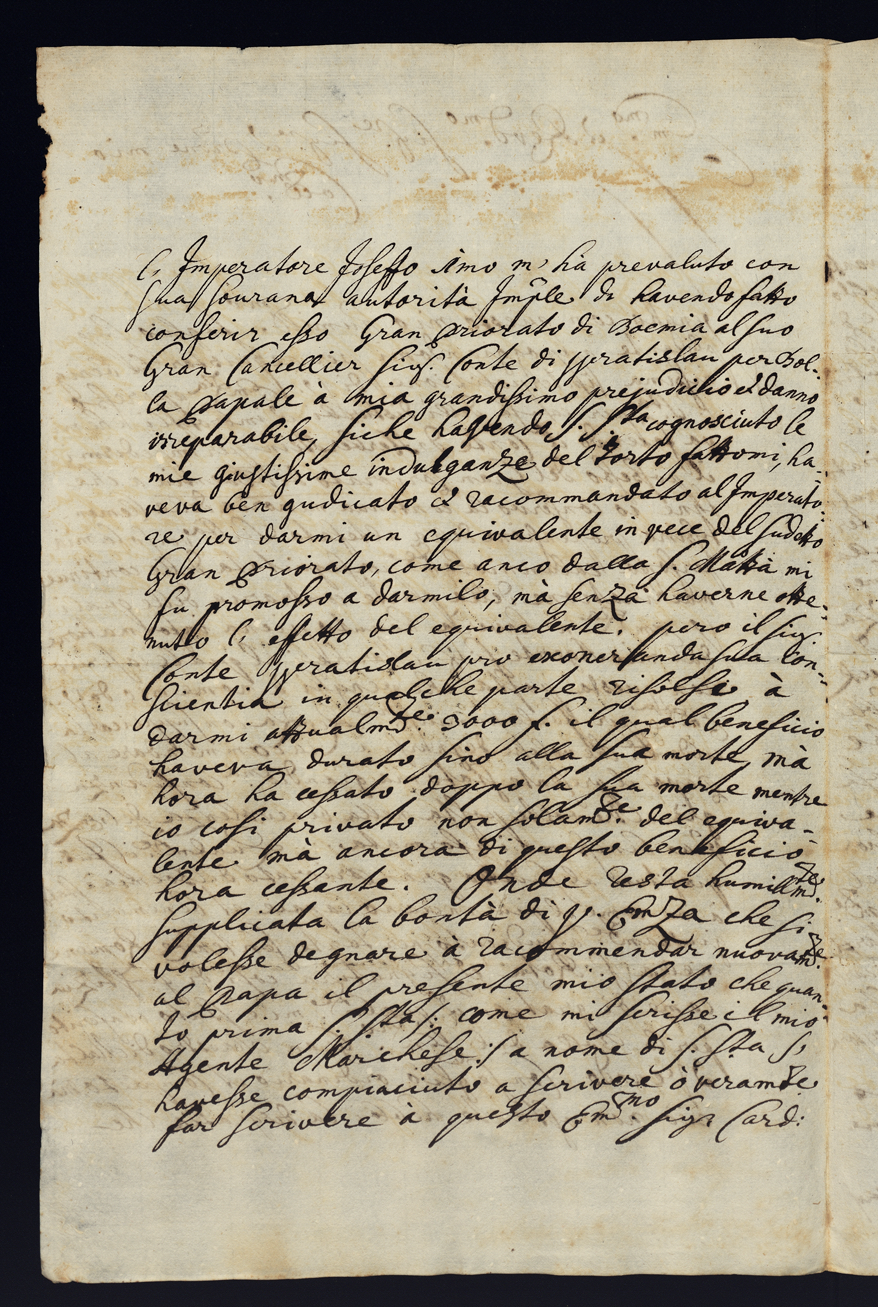 l'Imperatore Joseffo Imo m'hà prevaluto con
sua sourana autorità Imple di havendo fatto
conferir esso Gran Priorato di Boemia al suo
Gran Cancellier Sigr. Conte di Wratislau per Bol-
la Papale à mia grandissimo prejudicio et danno
irreparabile, siche havendo S. Sta cognosciuto le
mie giustissime indulganze del torto fattomi, ha-
veva ben gudicato et racommandato al Imperato-
re per darmi un equivalente in vece del sudetto
Gran Priorato, come anco dalla S. Mattà mi
fu promosso a darmilo, mà senza haverne otte-
nuto l'effetto del equivalente. però il sigr
Conte Wratislau pro exoneranda sua con-
scientia in qualche parte risolse à
darmi attualmte. 3000 f. il qual beneficio
haveva durato sino alla sua morte, mà
hora ha cessato doppo la sua morte mentre
io cosi privato non solamte. del equiva-
lente mà ancora di questo beneficio
hora cessante. Onde resta humillmte.
supplicata la bontà di V. Emza che si
volesse degnare à racommendar nuovamte.
al Papa il presente mio stato che quan-
to prima S. Sta /: come mi scrisse il mio
Agente Marchese :/ a nome di S. Sta
havesse compiaciuto a scrivere ò veramte
far scrivere à questo Emmo. sigr Card: